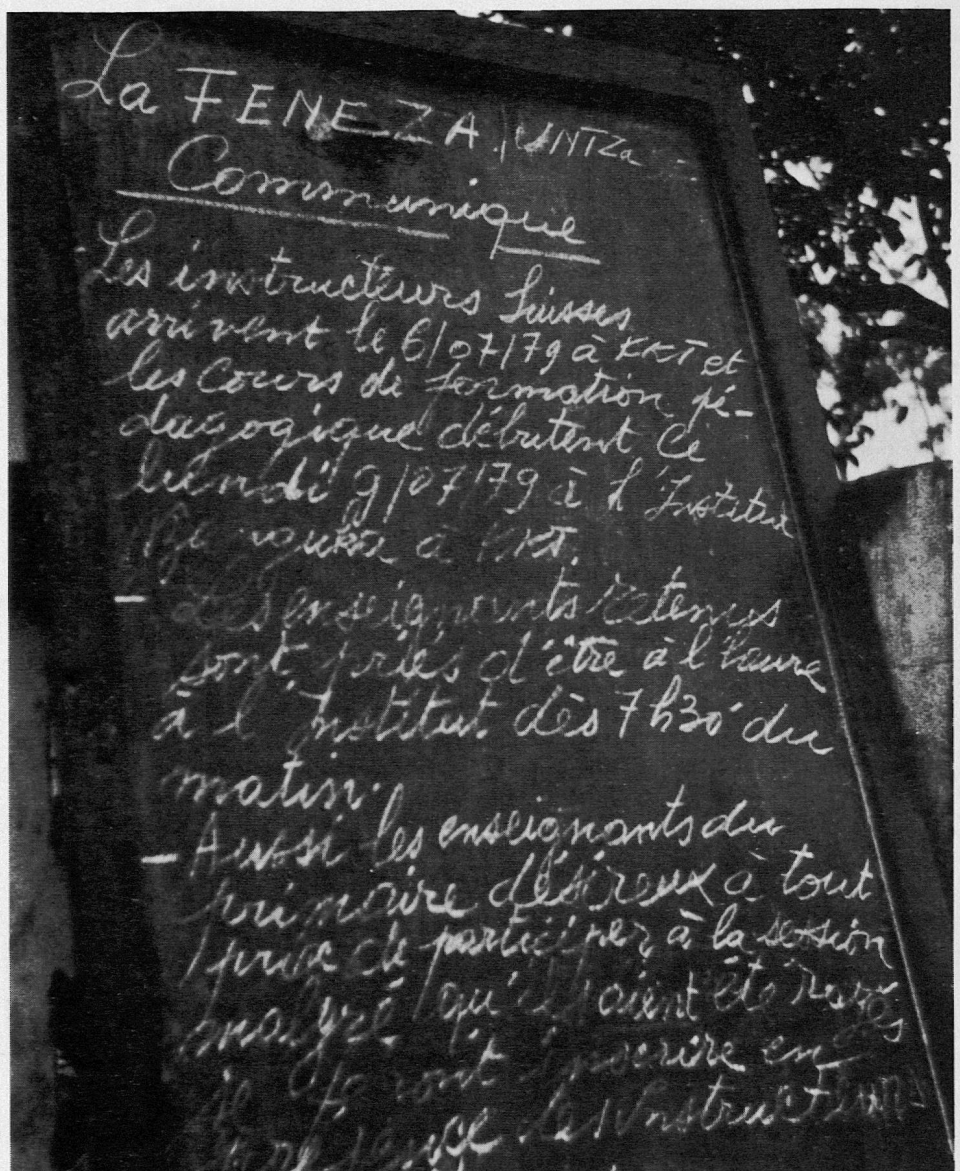 La FENEZA / UNTZa
Communique
Les instructeurs Suisses
arrivent le 6/07/79 à KKT et
les cours de formation pé-
dagogique débutent ce
lundi 9/07/79 à l'Institut
à KKT.
- Les enseignants retenus
sont priés d'être à l'heure
à l'Institut dès 7h30' du
matin.
- Aussi les enseignants du
primaire désireux à tout
prix de participer à la session
malgré qu'ils aient été rayés
se feront inscrire en
présence des Instructeurs